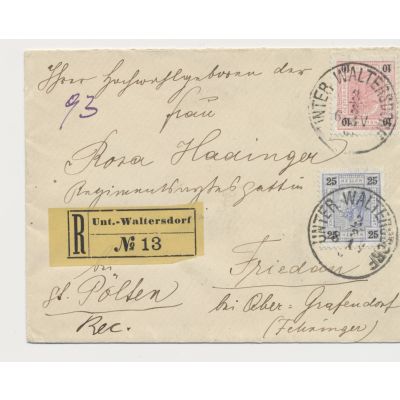 Ihrer Hochwohlgeboren der
93
Frau
Rosa Hadinger
Regimentsarztesgattin
R
Unt.-Waltersdorf
№ 13
bei
St. Pölten
Rec.
Friedau
bei Ober-Grafendorf
(Fehringer)
10
10
UNTER WALTERSDORF
25
25
25
25
UNTER WALTERSDORF